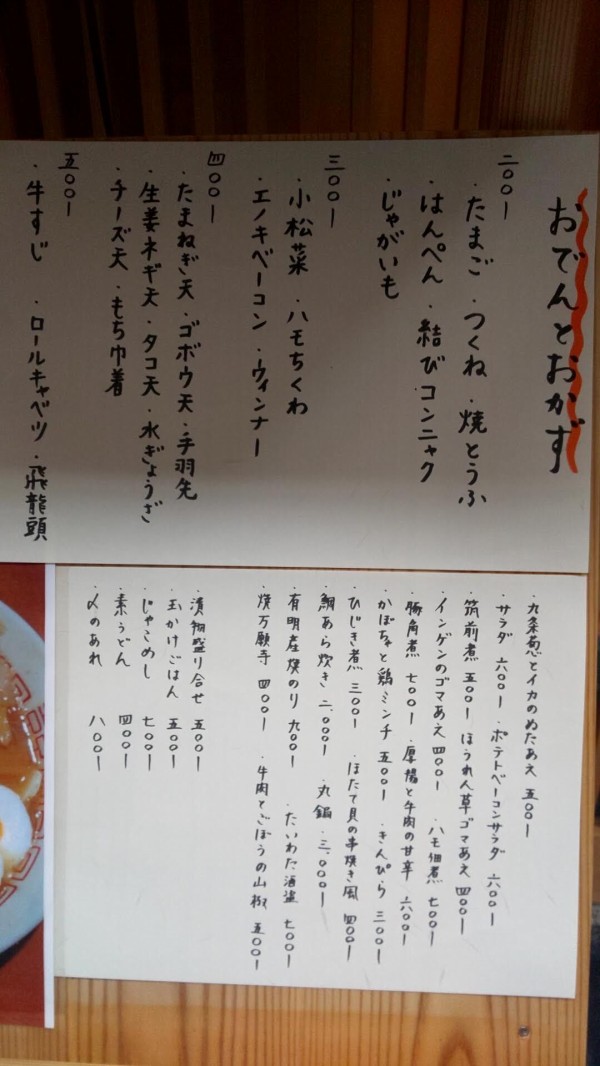 おでんとおかず
二〇〇ー
・たまご ・つくね ・焼とうふ
・はんぺん ・結びコンニャク
・じゃがいも
三〇〇ー
・小松菜 ・ハモちくわ
・エノキベーコン ・ウィンナー
四〇〇ー
・たまねぎ天 ・ゴボウ天 ・手羽先
・生姜ネギ天 ・タコ天 ・水ぎょうざ
・チーズ天 ・もち巾着
五〇〇ー
・牛すじ ・ロールキャベツ ・飛龍頭
・九条葱とイカのぬたあえ 五〇〇ー
・サラダ 六〇〇ー ・ポテトベーコンサラダ 六〇〇ー
・筑前煮 五〇〇ー ほうれん草ゴマあえ 四〇〇ー
・インゲンのゴマあえ 四〇〇ー ・ハモ佃煮 七〇〇ー
・豚角煮 七〇〇ー ・厚揚と牛肉の甘辛 六〇〇ー
・かぼちゃと鶏ミンチ 五〇〇ー ・きんぴら 三〇〇ー
・ひじき煮 三〇〇ー ・ほたて貝の串焼き風 四〇〇ー
・鯛あら炊き 二、〇〇〇ー ・丸鍋 三、〇〇〇ー
・有明産焼のり 九〇〇ー ・たいわた酒盗 七〇〇ー
・焼万願寺 四〇〇ー ・牛肉とごぼうの山椒 五〇〇ー
・漬物盛り合せ 五〇〇ー
・玉かけごはん 五〇〇ー
・じゃこめし 七〇〇ー
・素うどん 四〇〇ー
・〆のあれ 八〇〇ー